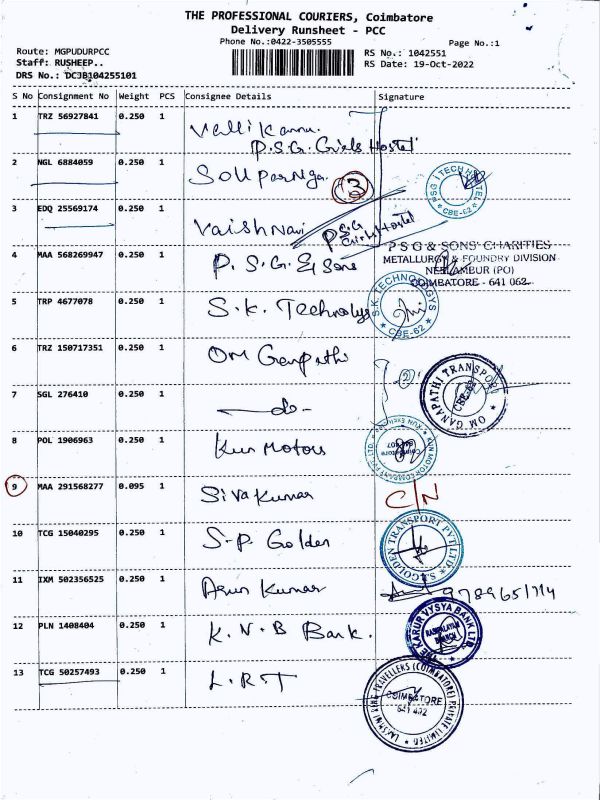 THE PROFESSIONAL COURIERS, Coimbatore
Delivery Runsheet - PCC
Phone No.:0422-3505555
Page No.:1
Route: MGPUDURPCC
RS No.: 1042551
Staff: RUSHEEP..
RS Date: 19-Oct-2022
DRS No.: DCJB104255101
S No Consignment No Weight PCS Consignee Details Signature
1 TRZ 56927841 0.250 1 Valli Kannu.
P.S.G. Girls Hostel
2 NGL 6884059 0.250 1 Souparniga. 3
PSG I TECH HOSTEL CBE-62
3 EDQ 25569174 0.250 1 Vaishnavi PSG Girls Hostel
4 MAA 568269947 0.250 1 P.S.G. & Sons
P S G & SONS' CHARITIES
METALLURGY & FOUNDRY DIVISION
NEELAMBUR (PO)
COIMBATORE - 641 062.
5 TRP 4677078 0.250 1 S.K. Technolys
S.K TECHNOLOGYS CBE-62
6 TRZ 150717351 0.250 1 OM Ganpathi
2
OM GANAPATHI TRANSPORT CBE-62
7 SGL 276410 0.250 1 -do-
8 POL 1906963 0.250 1 Kun Motors
KUN MOTOR COMPANY PVT. LTD. Coimbatore
9 MAA 291568277 0.095 1 Sivakumar C/N
10 TCG 15040295 0.250 1 S.P. Golden
S.P.GOLDEN TRANSPORT PVT LTD
11 IXM 502356525 0.250 1 Arun Kumar
12 PLN 1408404 0.250 1 K.N.B Bank.
THE KARUR VYSYA BANK LTD.
13 TCG 50257493 0.250 1 L.R.T
LAKSHMI RING TRAVELLERS (COIMBATORE) PRIVATE LIMITED
COIMBATORE
641 402